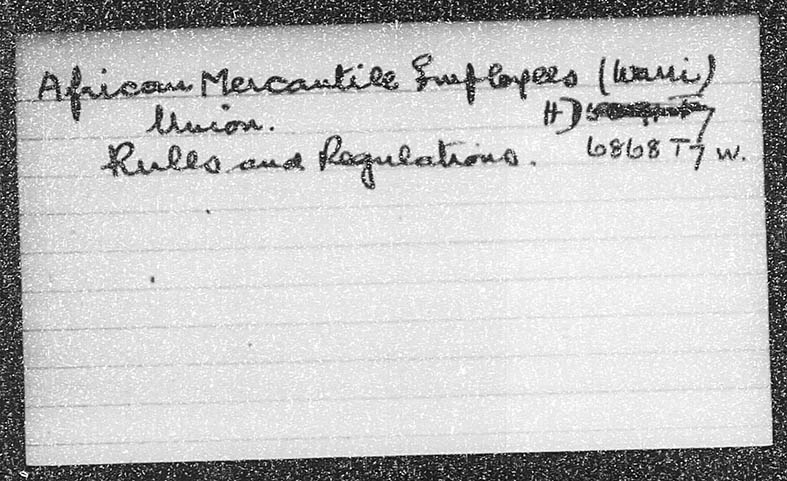 African Mercantile Employees (Warri)
Union. HD
Rules and Regulations. 6868 T7 W.